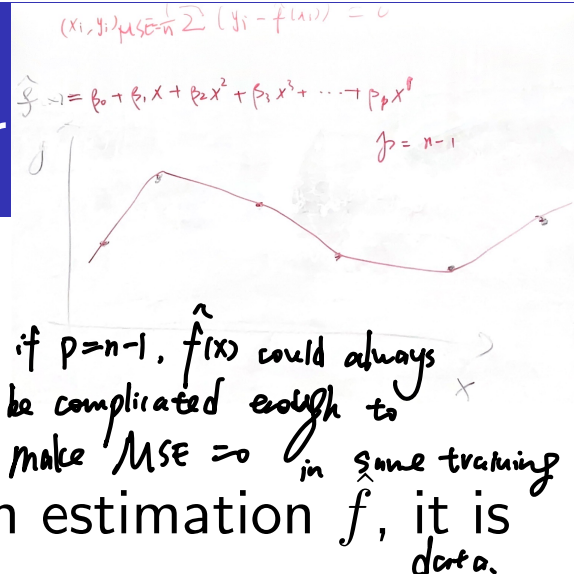 (xi, yi) MSE = 1/n Σ (yi - f̂(xi)) = 0
f̂ = β₀ + β₁x + β₂x² + β₃x³ + ⋯ + βₚxᵖ
p = n-1
x
if p=n-1, f̂(x) could always
be complicated enough to
make MSE = 0
in same training
n estimation f̂, it is
data.